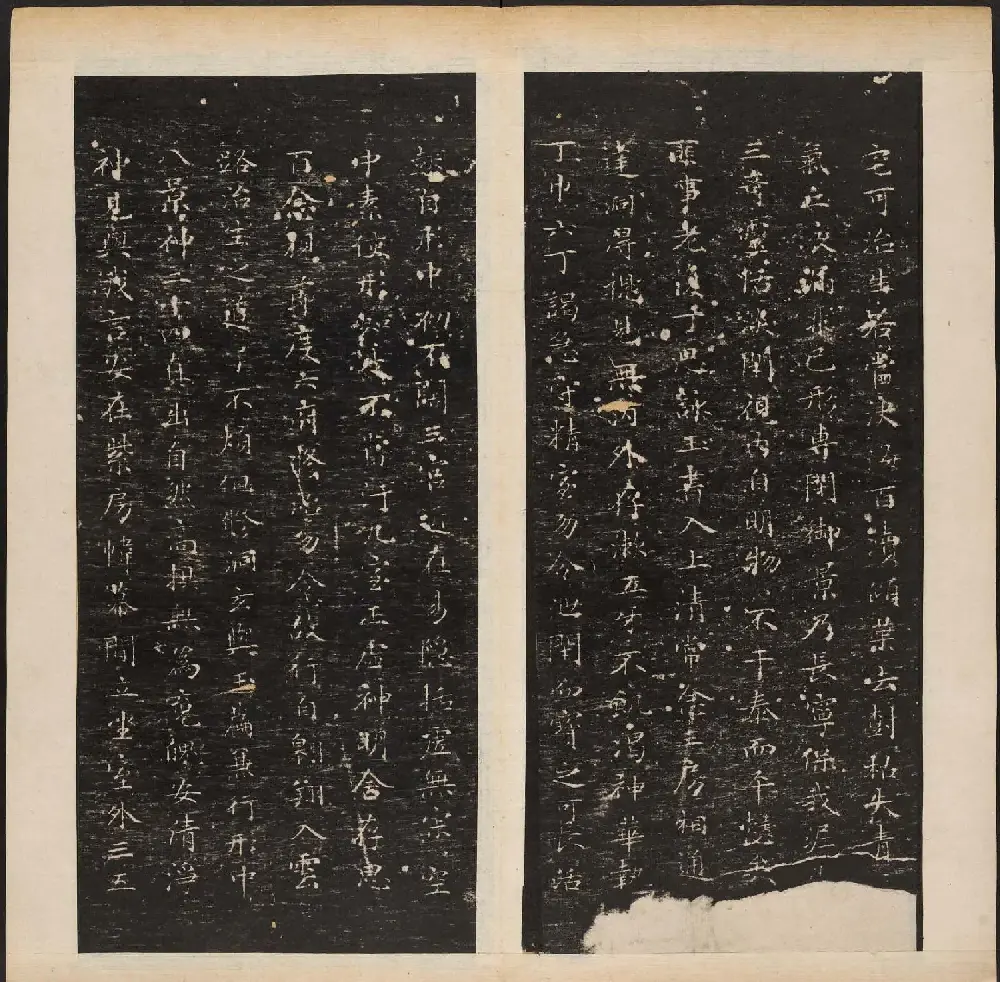 宅可治生若當決海百瀆傾葉去樹私失青
氣亡液漏非己形專閉御景乃長寧保我泥
三奇靈恬淡閉視內自明物不干泰而平愨矣
匪事老復丁思詠玉書入上清常念三房相通
達洞得視見無內外存漱五牙不飢渴神華執
丁巾六丁謁急守精室勿令泄閉而寶之可長活
起自形中初不闊三宮近在易隱括虛無寂空
中素使形如是不當汙九室正虛神明舍存思
百念視節度六府修治勿令故行自翱翔入雲
路治生之道了不煩但修洞玄與玉篇兼行形中
八景神二十四真出自然高拱無為魂魄安清淨
神見與我言安在紫房幃幕間立坐室外三五